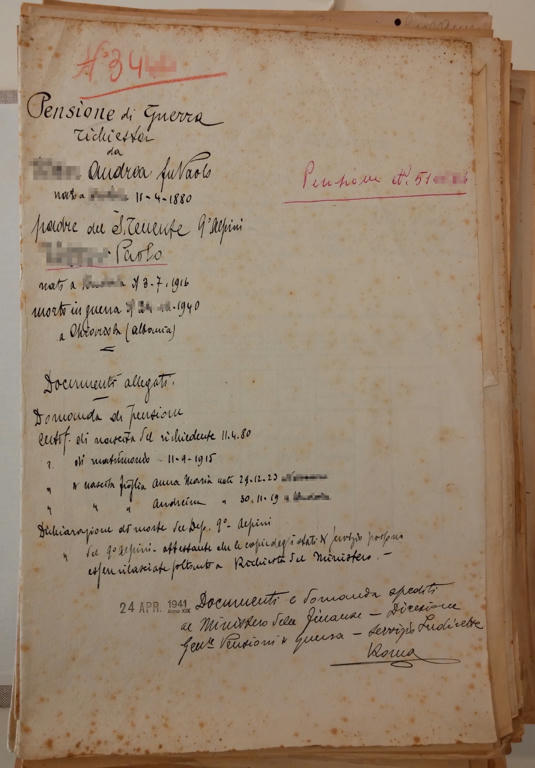 N° 34
Pensione di Guerra
richiesta
da
Andrea fu Paolo
nato a 11-4-1880
Pensione N. 51
padre del S. Tenente 9° Alpini
Paolo
nato a il 3-7-1916
morto in guerra il -1940
a (Albania)
Documenti allegati.
Domanda di pensione
Certif. di nascita del richiedente 11.4.80
" di matrimonio - 11-9-1915
" di nascita figlia Anna Maria nata 29-12-23
" " " Andreina " 30-11-19 a
Dichiarazione di morte del Dep. 9° Alpini
" del 9° Alpini - attestante che le copie degli stati di servizio possono
esser rilasciate soltanto a Richiesta del Ministero. -
24 APR. 1941 Anno XIX Documenti e domanda spediti
al Ministero delle Finanze - Direzione
Gen.le Pensioni di Guerra - Servizio Indirette
Roma